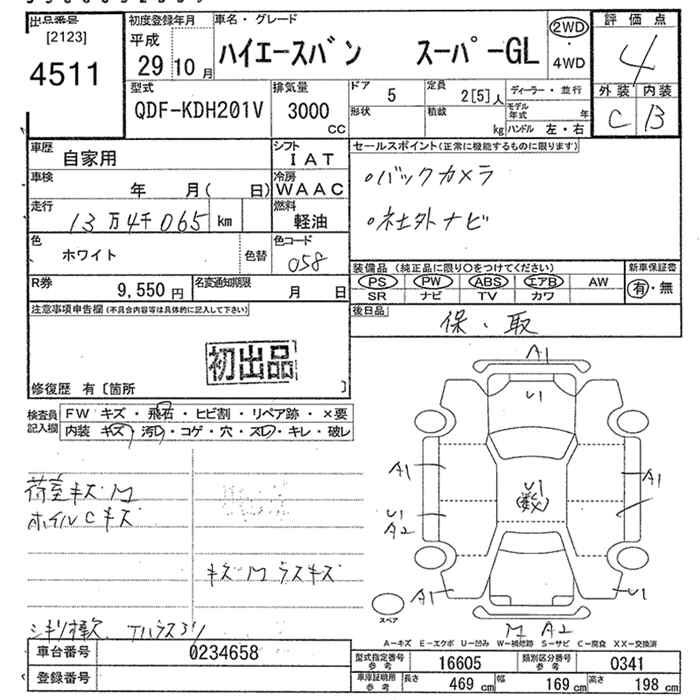 出品番号
[2123]
4511
初度登録年月
平成
29 10月
車名・グレード
ハイエースバン スーパーGL
2WD
・
4WD
評価点
4
外装 内装
C B
型式
QDF-KDH201V
排気量
3000
CC
ドア
5
定員
2[5]人
形状
積載
kg
ディーラー・並行
モデル年式 年
ハンドル 左・右
車歴
自家用
シフト
IAT
車検
年 月( 日)
冷房
WAAC
走行
13万4千065 km
燃料
軽油
色
ホワイト
色替
色コード
058
R券
9,550円
名変通知期限
月 日
セールスポイント(正常に機能するものに限ります)
○バックカメラ
○社外ナビ
装備品 (純正品に限り○をつけてください)
PS PW ABS エアB AW
SR ナビ TV カワ
新車保証書
有・無
後日品
保、取
注意事項申告欄(不具合内容等は具体的に記入して下さい)
初出品
修復歴 有〔箇所 〕
検査員記入欄
FW キズ・飛石・ヒビ割・リペア跡・×要
内装 キズ・汚レ・コゲ・穴・スレ・キレ・破レ
荷室キズM
ホイルCキズ
キズM ラスキズ
A1
U1
A1
U1
(数)
A1
U1
A2
A1
U1
M A2
スペア
A-キズ E-エクボ U-凹み W-補修跡 S-サビ C-腐食 XX-交換済
車台番号
0234658
登録番号
型式指定番号
参考
16605
類別区分番号
参考
0341
車庫証明用
参考
長さ 469cm
幅 169cm
高さ 198cm